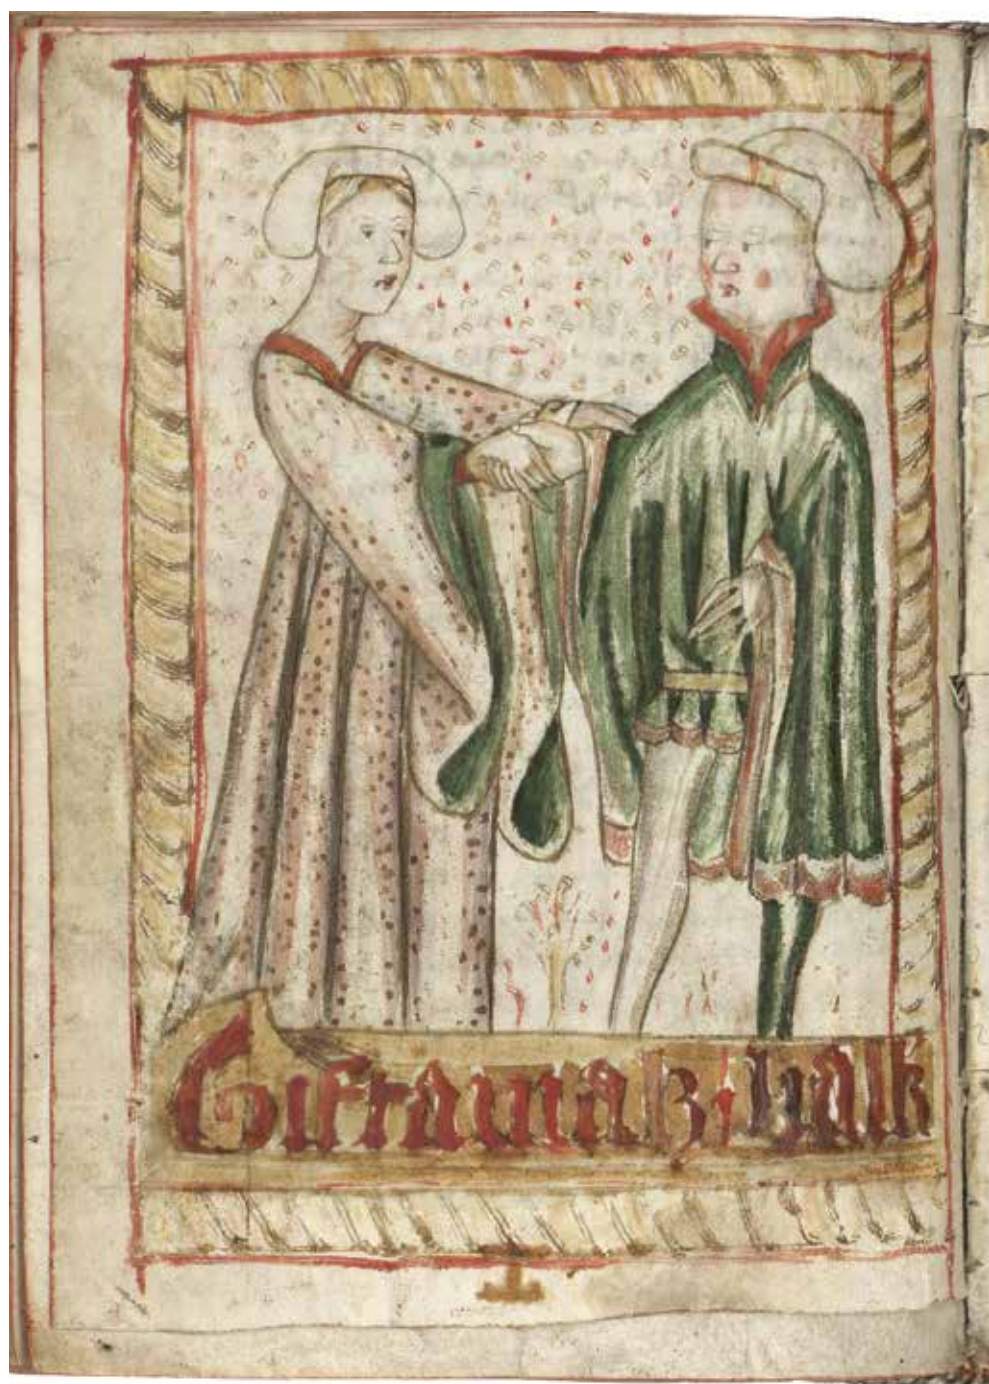 Giftamaz balk